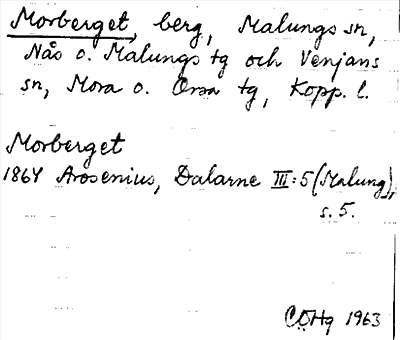 Morberget, berg, Malungs sn,
Nås o. Malungs tg och Venjans
sn, Mora o. Orsa tg, Kopp. l.
Morberget
1864 Arosenius, Dalarne III:5 (Malung),
s. 5.
CÖHg 1963